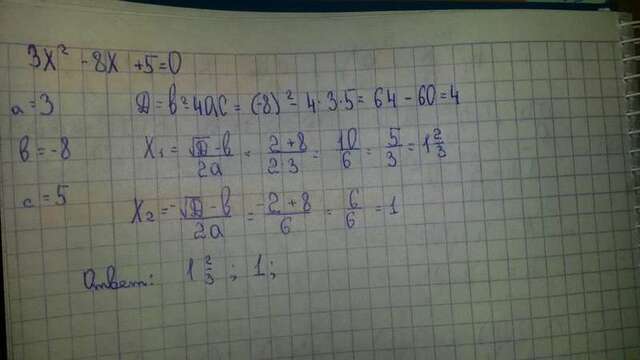 3x² - 8x + 5 = 0
a = 3 D = b² - 4ac = (-8)² - 4·3·5 = 64 - 60 = 4
b = -8 x₁ = √D - b / 2a = 2 + 8 / 2·3 = 10/6 = 5/3 = 1 2/3
c = 5 x₂ = -√D - b / 2a = -2 + 8 / 6 = 6/6 = 1
Ответ: 1 2/3 ; 1 ;